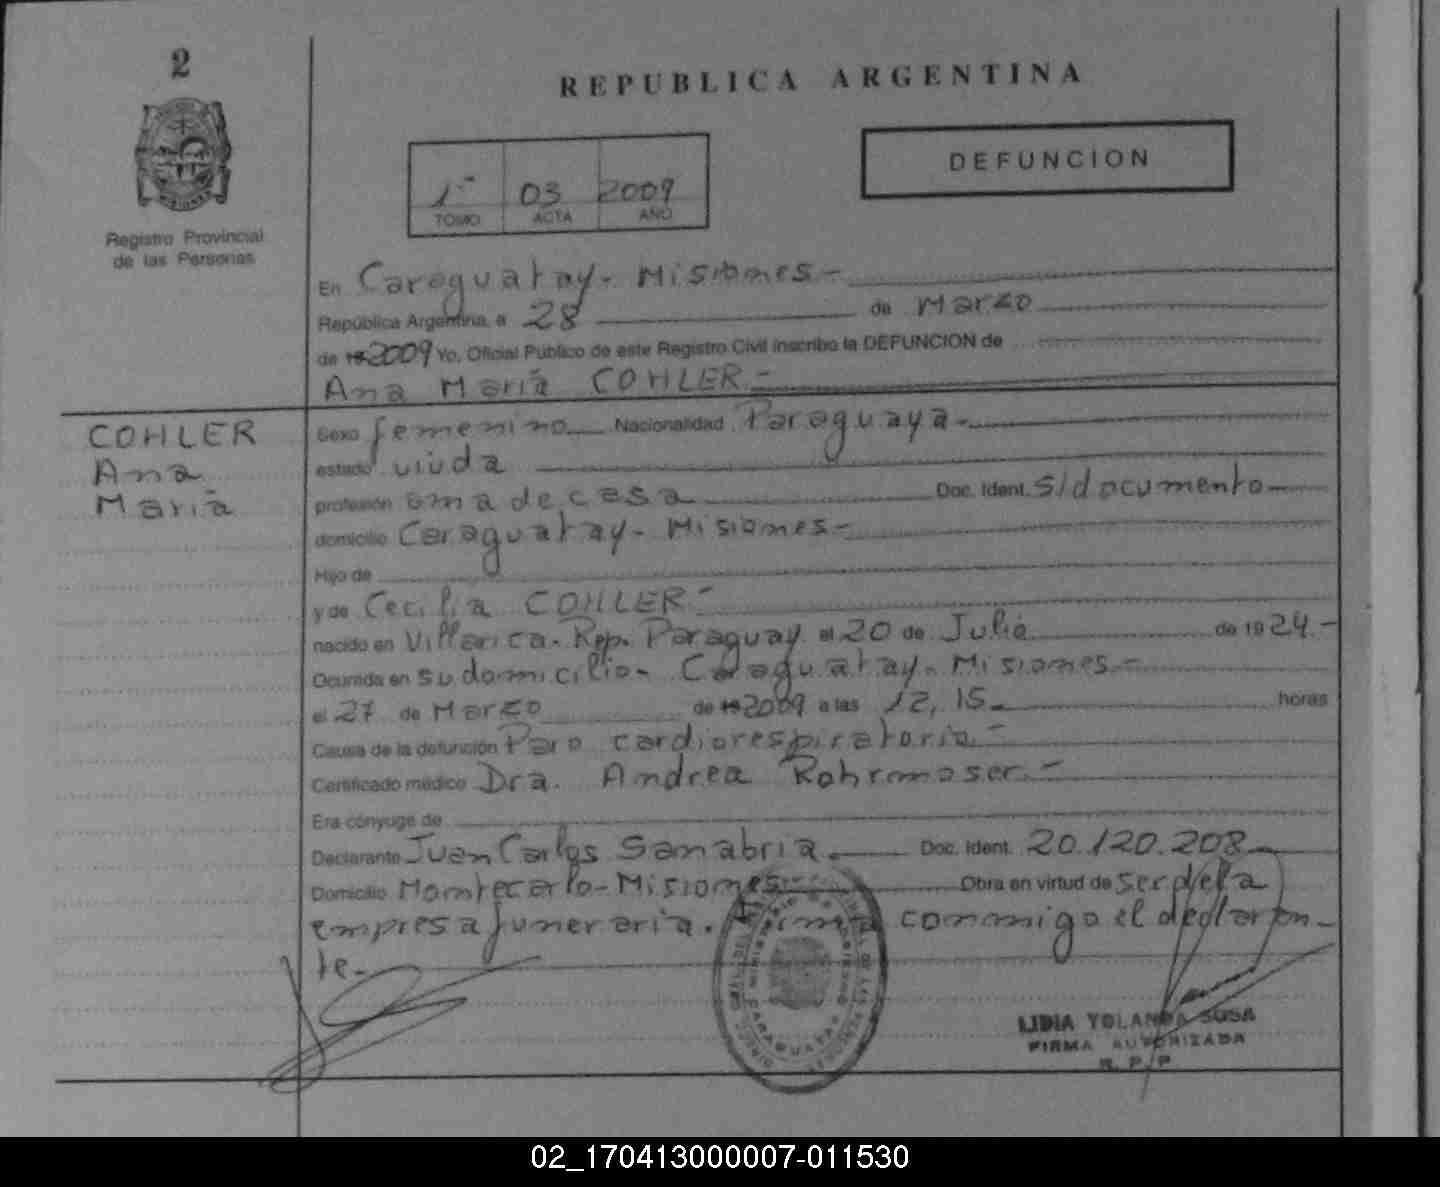 2
REPUBLICA ARGENTINA
DEFUNCION
1º 03 2009
TOMO ACTA AÑO
Registro Provincial
de las Personas
En Caraguatay - Misiones -
República Argentina, a 28 de Marzo
de 19 2009 Yo, Oficial Público de este Registro Civil inscribo la DEFUNCION de
Ana María COHLER -
COHLER
Ana
María
Sexo femenino Nacionalidad Paraguaya -
estado viuda
profesión ama de casa Doc. Ident. S/documento
domicilio Caraguatay - Misiones -
Hijo de
y de Cecilia COHLER -
nacido en Villarica - Rep. Paraguay el 20 de Julio de 19 24 -
Ocurrida en su domicilio - Caraguatay - Misiones -
el 27 de Marzo de 19 2009 a las 12,15 - horas
Causa de la defunción Paro cardiorespiratorio -
Certificado médico Dra. Andrea Rohrmoser -
Era cónyuge de
Declarante Juan Carlos Sanabria - Doc. Ident. 20.120.208
Domicilio Montecarlo - Misiones - Obra en virtud de ser de la
empresa funeraria. Firma conmigo el declaran-
te -
CARAGUATAY
LIDIA YOLANDA SOSA
FIRMA AUTORIZADA
R. P. P
02_170413000007-011530